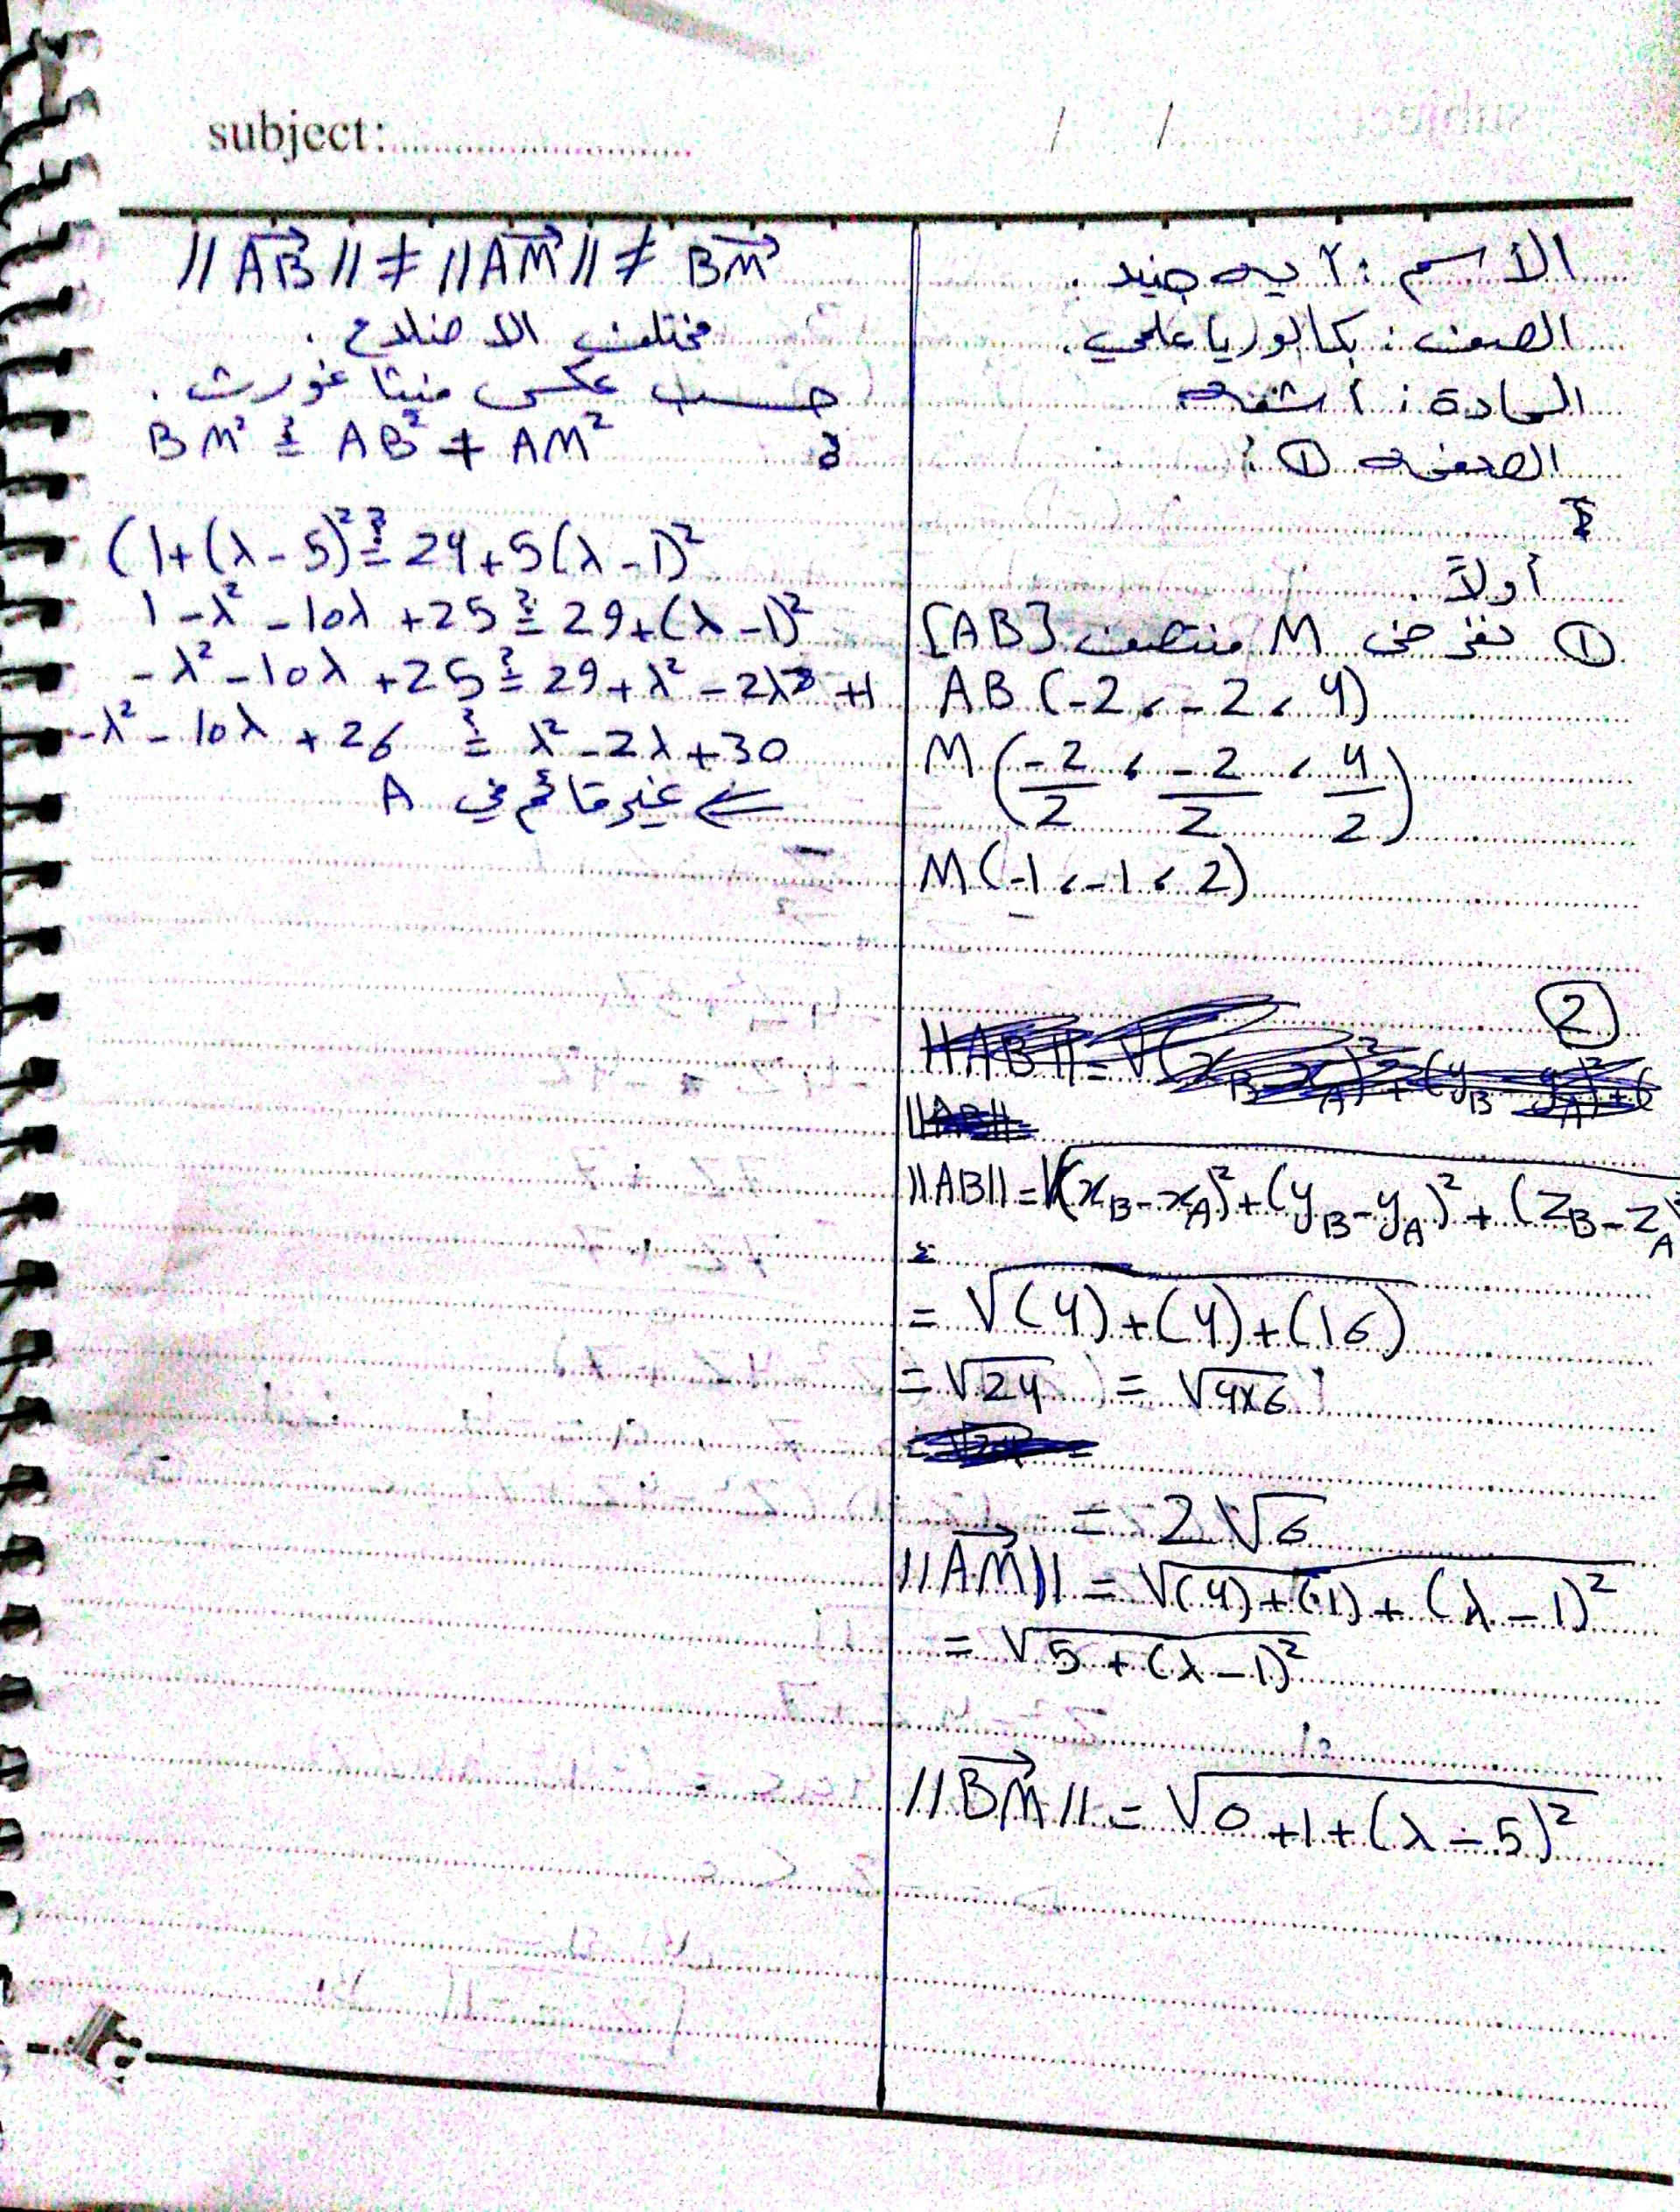 subject:
الاسم : آيه جنيد .
الصف : بكالوريا علمي .
المادة : أشعه
الصفحه ①
أولاً .
① نفرض M منتصف [AB]
AB (-2 , -2 , 4)
M (-2/2 , -2/2 , 4/2)
M (-1 , -1 , 2)
②
||AB|| = √(x_B - x_A)² + (y_B - y_A)² + (z_B - z_A)
= √(4) + (4) + (16)
= √24 = √4×6
= 2√6
||AM|| = √(4) + (1) + (λ - 1)²
= √5 + (λ - 1)²
||BM|| = √0 + 1 + (λ - 5)²
||AB|| ≠ ||AM|| ≠ BM
مختلف الاضلاع .
حسب عكس فيثاغورث .
BM² ≟ AB² + AM²
(1 + (λ - 5)² ≟ 24 + 5(λ - 1)²
1 - λ² - 10λ + 25 ≟ 29 + (λ - 1)²
-λ² - 10λ + 25 ≟ 29 + λ² - 2λ + 1
-λ² - 10λ + 26 ≟ λ² - 2λ + 30
⇐ غير قائم في A